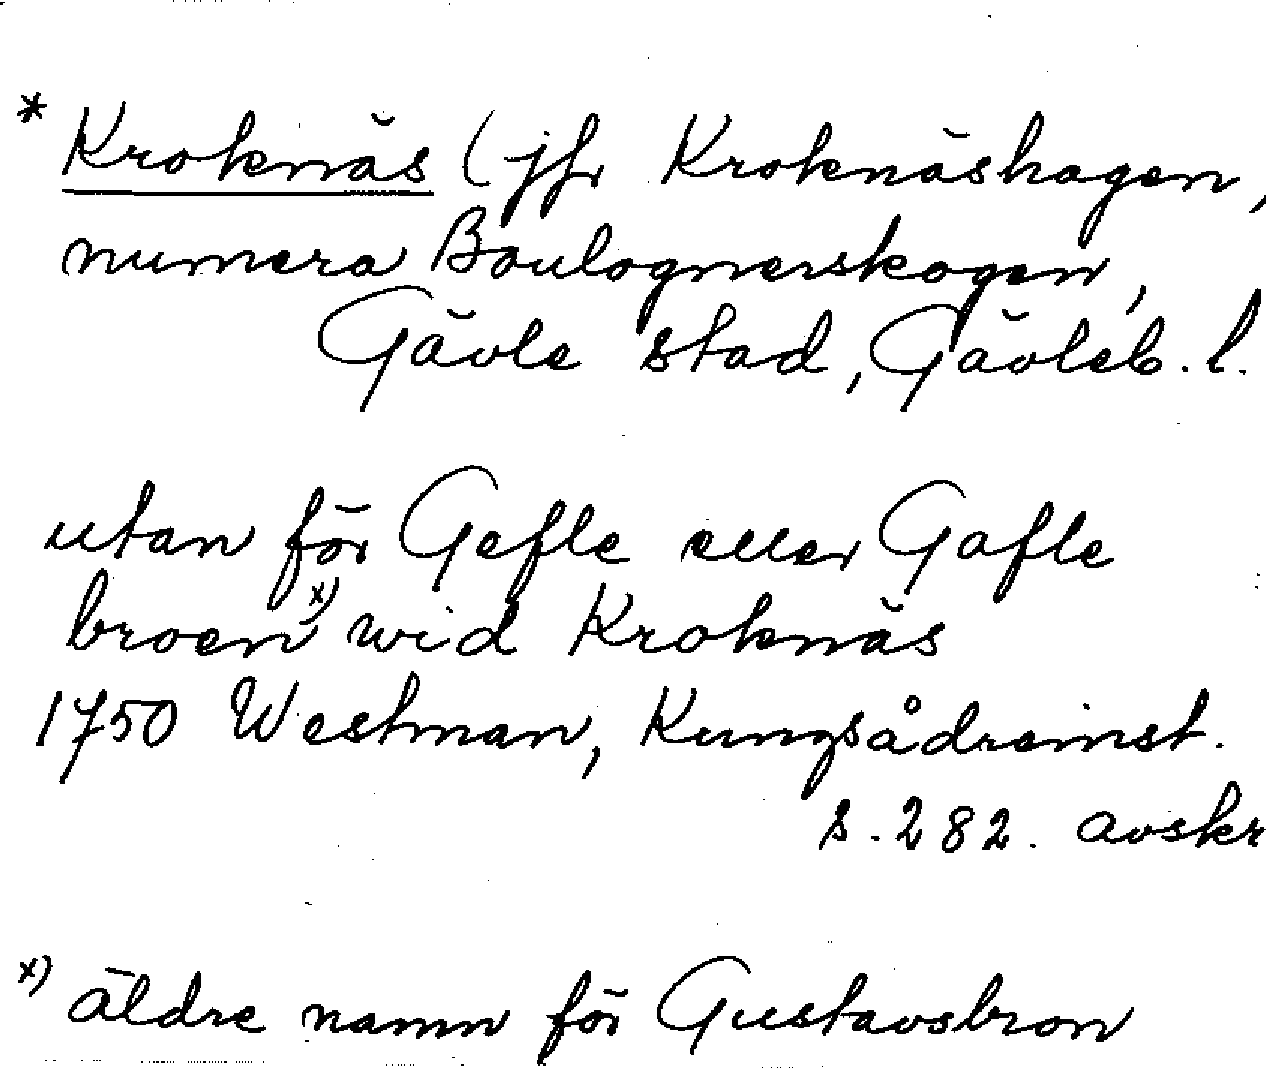 * Kroknäs (jfr Kroknäshagen,
numera Boulognerskogen,
Gävle stad, Gävleb. l.
utan för Gefle eller Gafle
broen x) wid Kroknäs
1750 Westman, Kungsådreinst.
s. 282. avskr
x) äldre namn för Gustavsbron